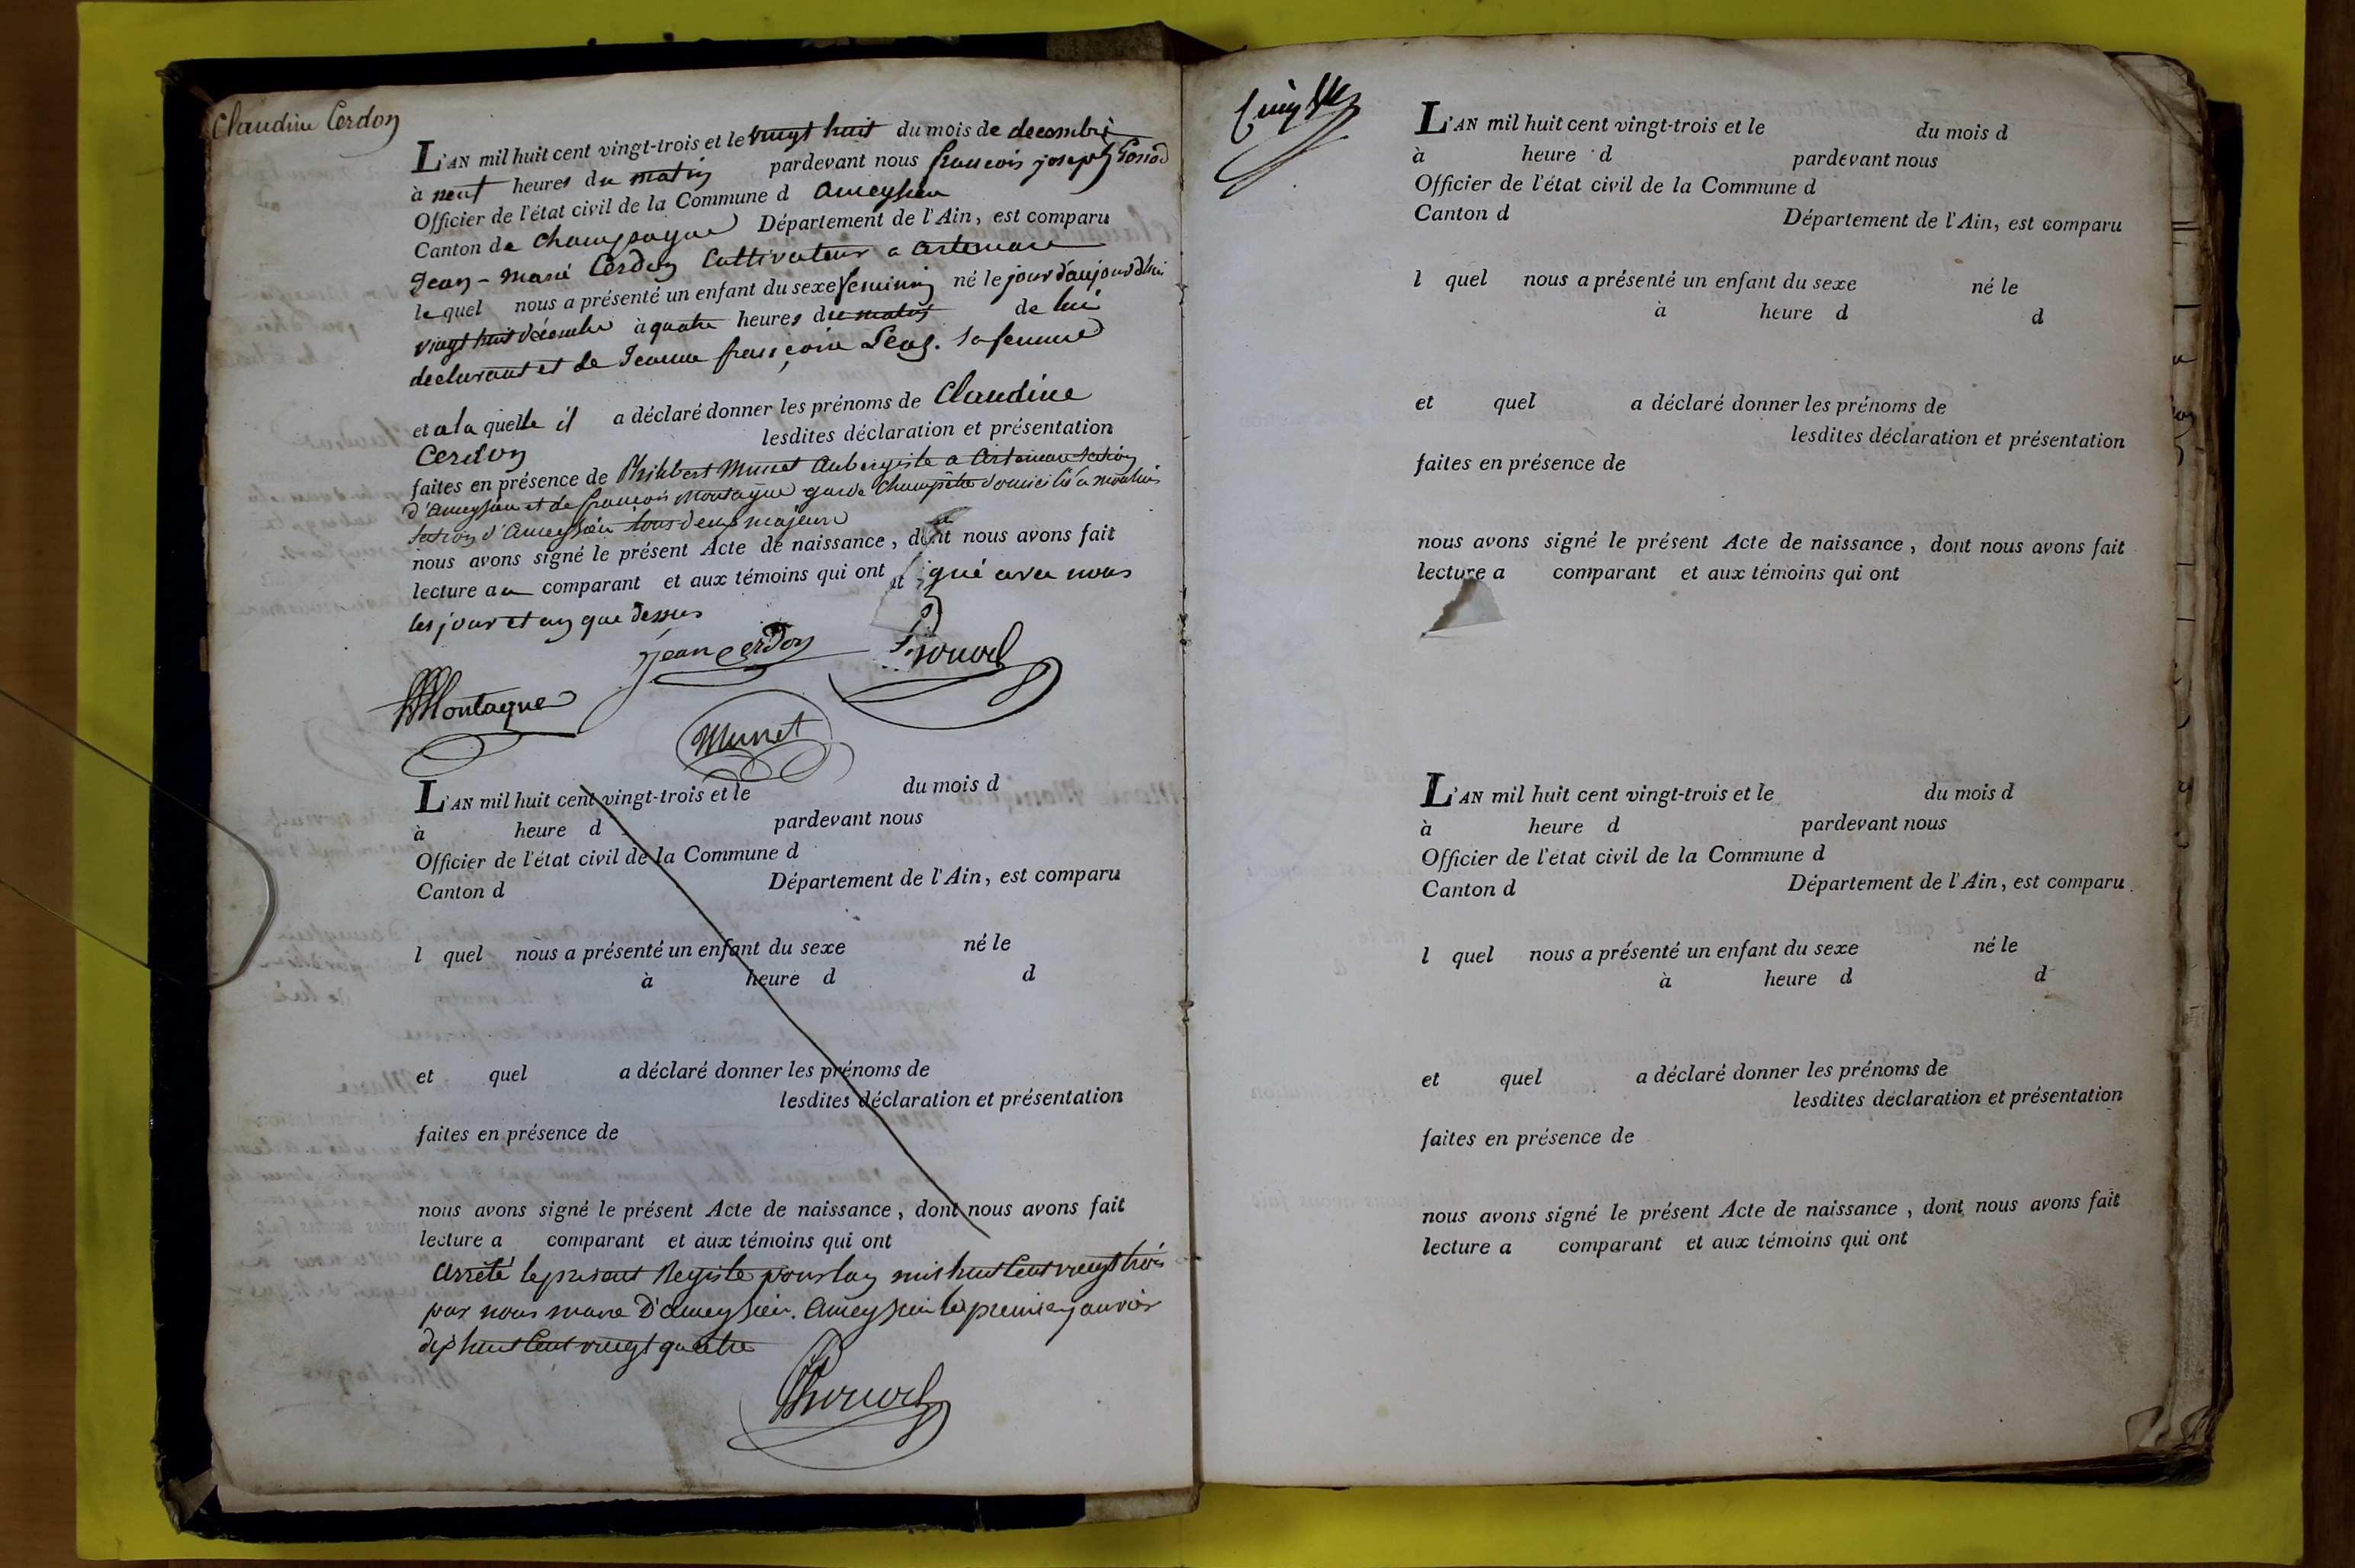 Claudine Cerdon
L'AN mil huit cent vingt-trois et le vingt huit du mois de decembre
à neuf heures du matin pardevant nous francois joseph
Officier de l'état civil de la Commune d ameysieu
Canton de champagne Département de l'Ain, est comparu
Jean-marie Cerdon Cultivateur a artemare
le quel nous a présenté un enfant du sexe feminin né le jour d'aujourd'hui
vingt huit décembre à quatre heures du matin de lui
declarant et de Jeanne françoise sa femme
et a la quelle il a déclaré donner les prénoms de Claudine
Cerdon lesdites déclaration et présentation
faites en présence de Philibert Munet Aubergiste a Artemare section
d'Ameysieu et de francois Montagne garde Champêtre domicilié a
section d'Ameysieu tous deux majeurs
nous avons signé le présent Acte de naissance, dont nous avons fait
lecture au comparant et aux témoins qui ont signé avec nous
les jour et an que dessus
jean Cerdon
Montagne
Munet
L'AN mil huit cent vingt-trois et le du mois d
à heure d pardevant nous
Officier de l'état civil de la Commune d
Canton d Département de l'Ain, est comparu
l quel nous a présenté un enfant du sexe né le
à heure d d
et quel a déclaré donner les prénoms de
lesdites déclaration et présentation
faites en présence de
nous avons signé le présent Acte de naissance, dont nous avons fait
lecture a comparant et aux témoins qui ont
arrêté le present Registe pour lan mil huit Cent vingt trois
par nous maire D'ameysieu. Ameysieu le premier janvier
dix huit Cent vingt quatre
L'AN mil huit cent vingt-trois et le du mois d
à heure d pardevant nous
Officier de l'état civil de la Commune d
Canton d Département de l'Ain, est comparu
l quel nous a présenté un enfant du sexe né le
à heure d d
et quel a déclaré donner les prénoms de
lesdites déclaration et présentation
faites en présence de
nous avons signé le présent Acte de naissance, dont nous avons fait
lecture a comparant et aux témoins qui ont
L'AN mil huit cent vingt-trois et le du mois d
à heure d pardevant nous
Officier de l'état civil de la Commune d
Canton d Département de l'Ain, est comparu
l quel nous a présenté un enfant du sexe né le
à heure d d
et quel a déclaré donner les prénoms de
lesdites déclaration et présentation
faites en présence de
nous avons signé le présent Acte de naissance, dont nous avons fait
lecture a comparant et aux témoins qui ont